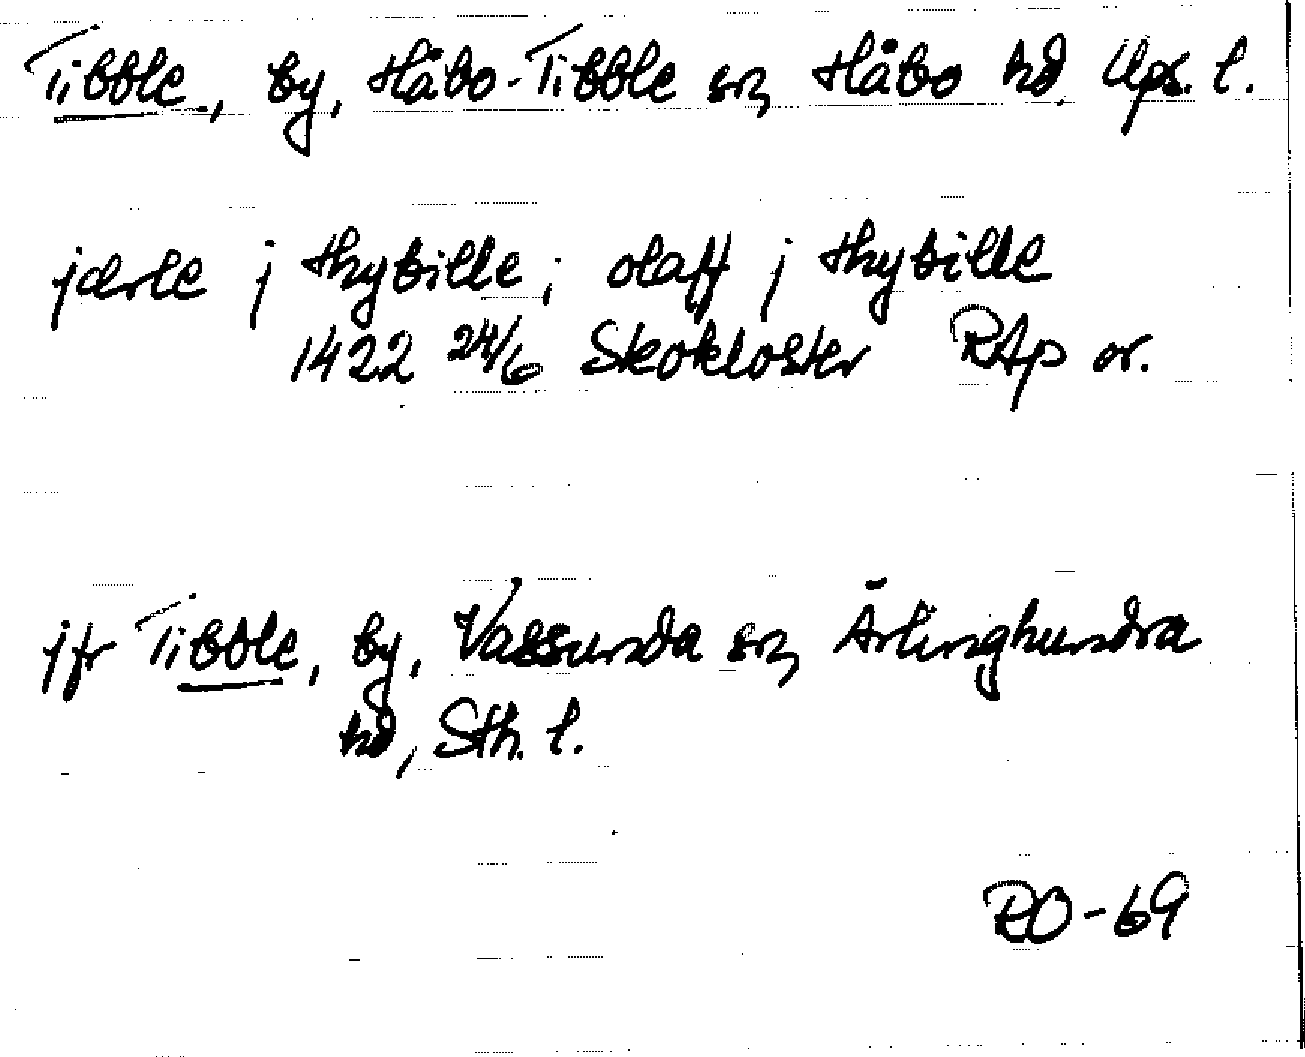 Tibble, by, Håbo-Tibble sn, Håbo hd, Ups. l.
jærle j thybille; olaff j thybille
1422 24/6 Skokloster RAp or.
jfr Tibble, by, Vassunda sn, Ärlinghundra
hd, Sth. l.
RO-69